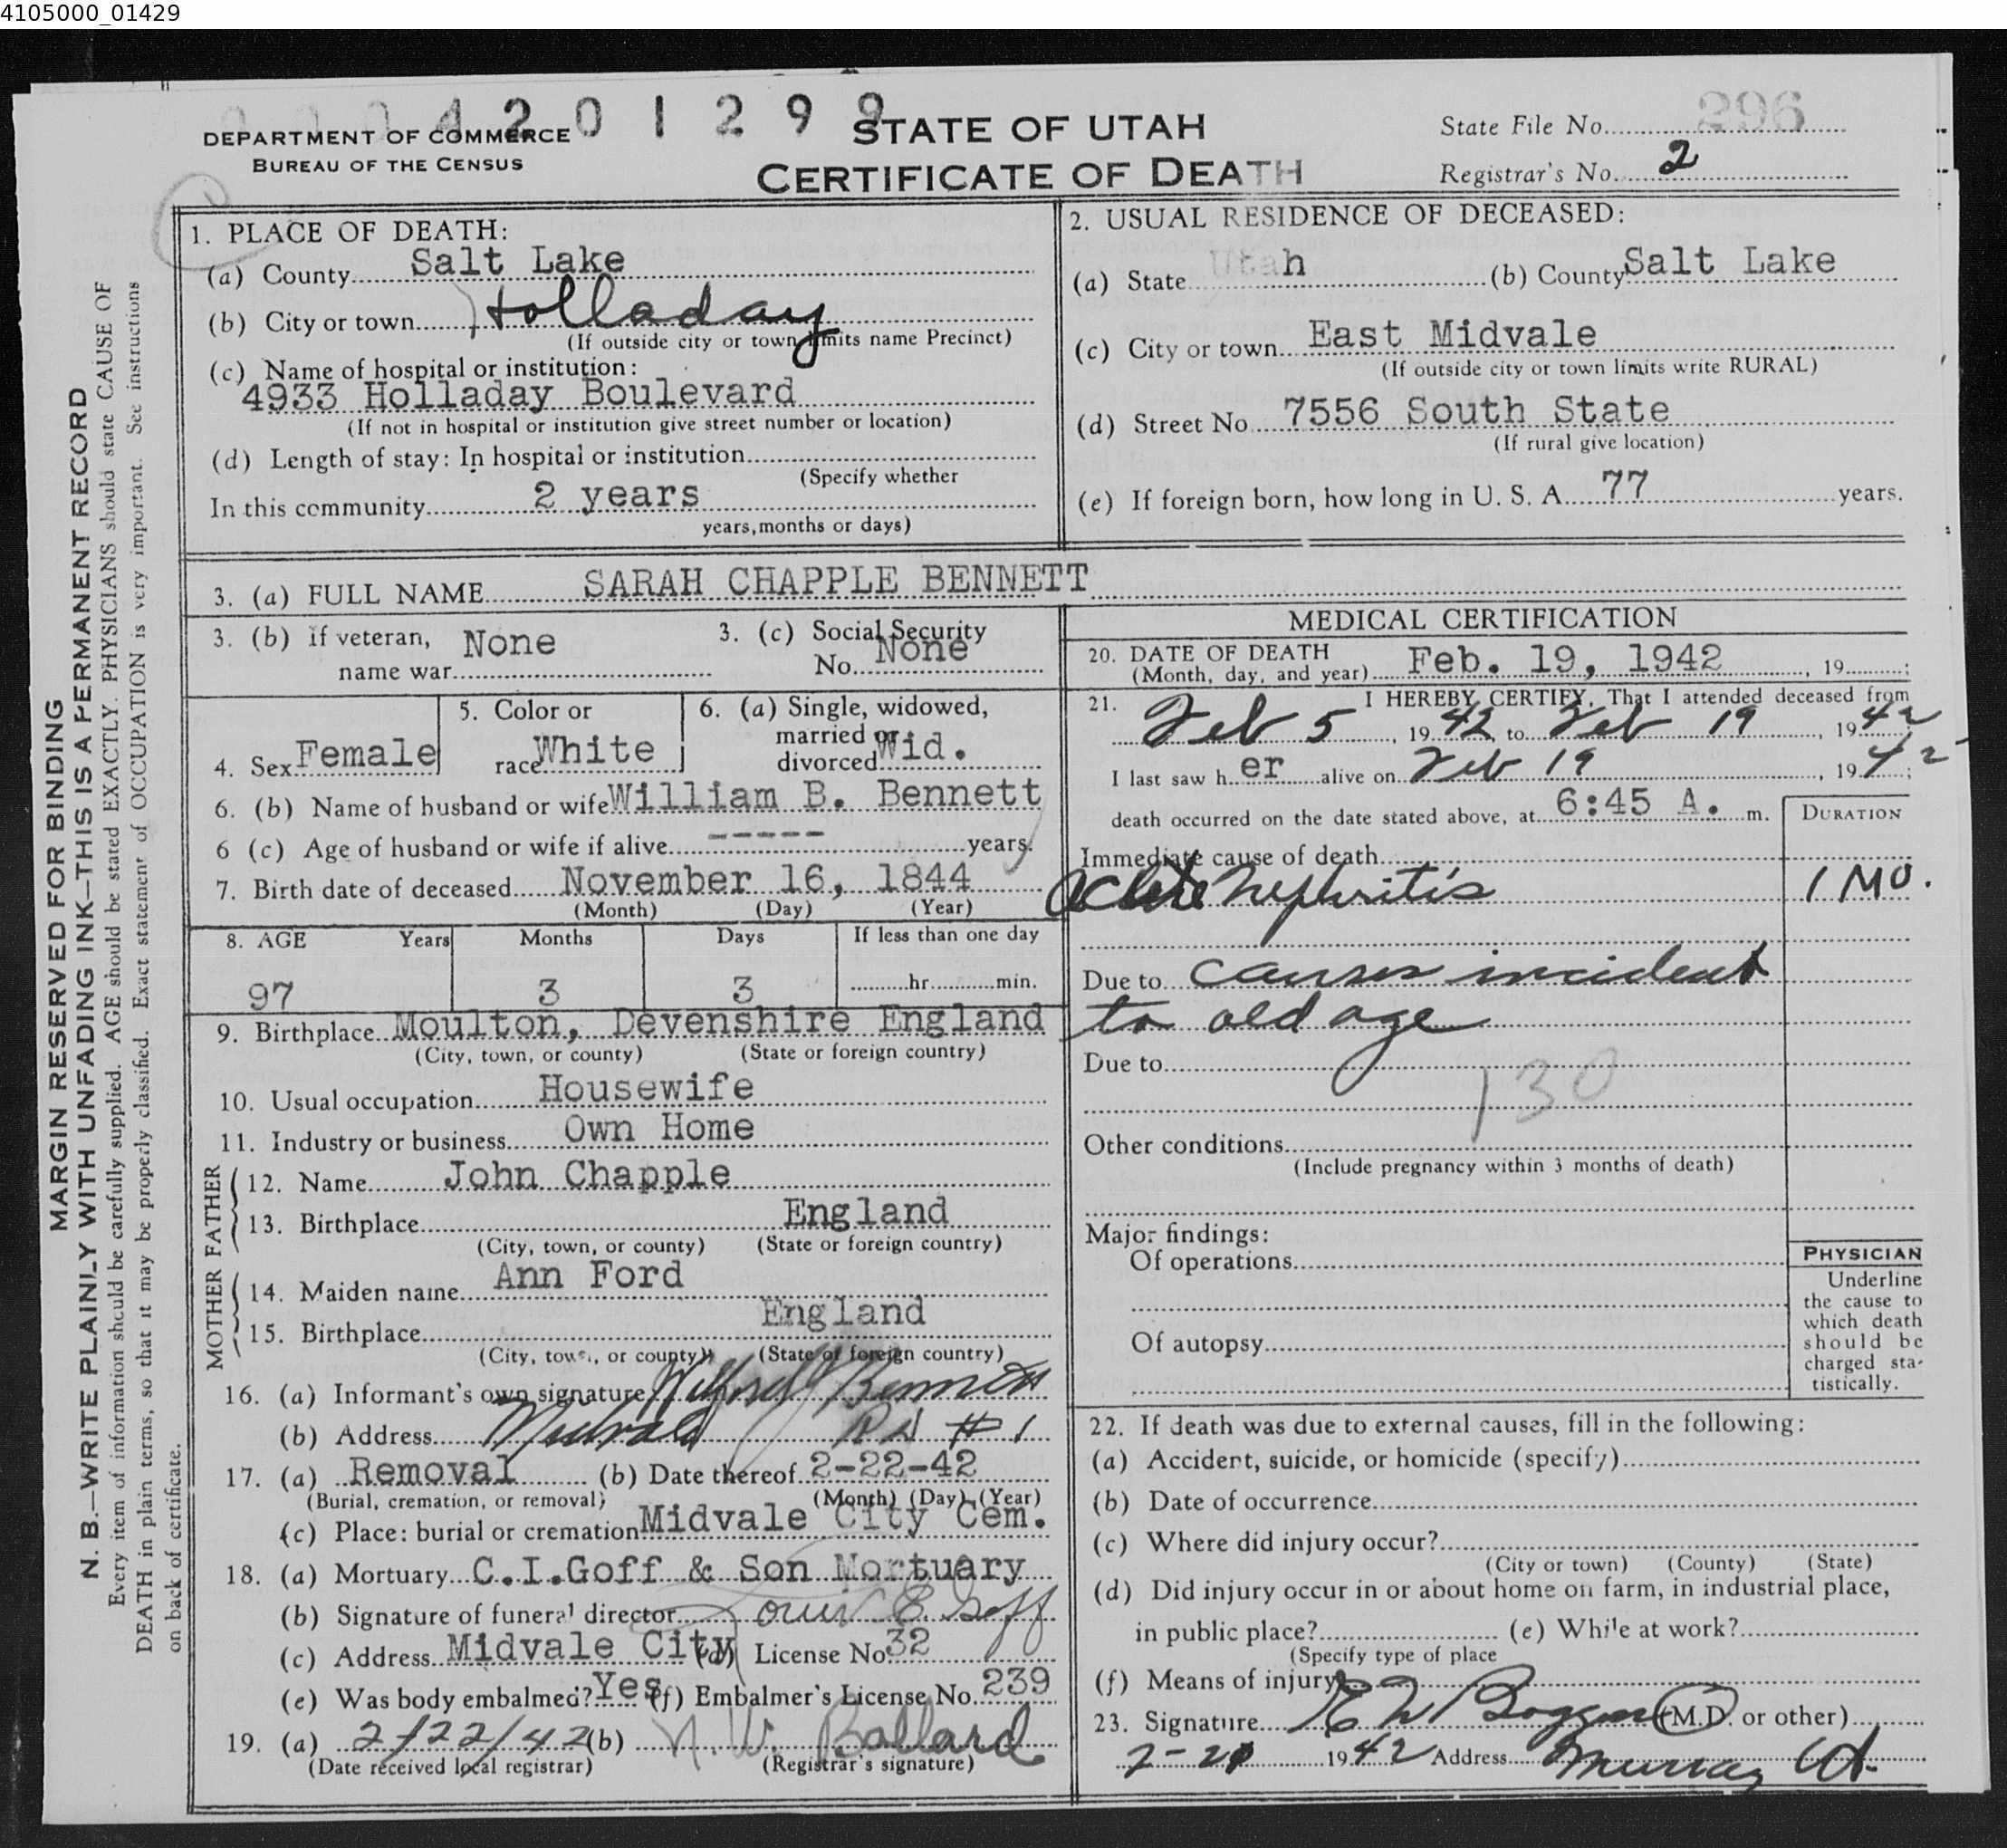 4105000_01429
4 2 0 1 2 9 9 9
DEPARTMENT OF COMMERCE
BUREAU OF THE CENSUS
STATE OF UTAH
CERTIFICATE OF DEATH
State File No. 296
Registrar's No. 2
MARGIN RESERVED FOR BINDING
N. B.—WRITE PLAINLY WITH UNFADING INK—THIS IS A PERMANENT RECORD
Every item of information should be carefully supplied. AGE should be stated EXACTLY. PHYSICIANS should state CAUSE OF
DEATH in plain terms, so that it may be properly classified. Exact statement of OCCUPATION is very important. See instructions
on back of certificate.
1. PLACE OF DEATH:
(a) County Salt Lake
(b) City or town Holladay
(If outside city or town limits name Precinct)
(c) Name of hospital or institution:
4933 Holladay Boulevard
(If not in hospital or institution give street number or location)
(d) Length of stay: In hospital or institution
(Specify whether
In this community 2 years
years, months or days)
2. USUAL RESIDENCE OF DECEASED:
(a) State Utah (b) County Salt Lake
(c) City or town East Midvale
(If outside city or town limits write RURAL)
(d) Street No 7556 South State
(If rural give location)
(e) If foreign born, how long in U. S. A. 77 years.
3. (a) FULL NAME SARAH CHAPPLE BENNETT
3. (b) If veteran, None
name war
3. (c) Social Security
No. None
4. Sex Female
5. Color or
race White
6. (a) Single, widowed,
married or
divorced Wid.
6. (b) Name of husband or wife William B. Bennett
6 (c) Age of husband or wife if alive ----- years.
7. Birth date of deceased November 16, 1844
(Month) (Day) (Year)
8. AGE Years Months Days If less than one day
97 3 3 hr. min.
9. Birthplace Moulton, Devenshire England
(City, town, or county) (State or foreign country)
10. Usual occupation Housewife
11. Industry or business Own Home
FATHER
12. Name John Chapple
13. Birthplace England
(City, town, or county) (State or foreign country)
MOTHER
14. Maiden name Ann Ford
15. Birthplace England
(City, town, or county) (State or foreign country)
16. (a) Informant's own signature Wilford Bennett
(b) Address Midvale RD #1
17. (a) Removal (b) Date thereof 2-22-42
(Burial, cremation, or removal) (Month) (Day) (Year)
(c) Place: burial or cremation Midvale City Cem.
18. (a) Mortuary C.I.Goff & Son Mortuary
(b) Signature of funeral director Louis E Goff
(c) Address Midvale City (d) License No. 32
(e) Was body embalmed? Yes (f) Embalmer's License No. 239
19. (a) 2/22/42 (b) N. W. Ballard
(Date received local registrar) (Registrar's signature)
MEDICAL CERTIFICATION
20. DATE OF DEATH
(Month, day, and year) Feb. 19, 1942, 19 ;
21. I HEREBY CERTIFY, That I attended deceased from
Feb 5, 19 42, to Feb 19, 19 42
I last saw h er alive on Feb 19, 19 42;
death occurred on the date stated above, at 6:45 A. m.
DURATION
Immediate cause of death
Acute Nephritis 1 MO.
Due to causes incident
to old age
Due to
130
Other conditions
(Include pregnancy within 3 months of death)
Major findings:
Of operations
Of autopsy
PHYSICIAN
Underline
the cause to
which death
should be
charged sta-
tistically.
22. If death was due to external causes, fill in the following:
(a) Accident, suicide, or homicide (specify)
(b) Date of occurrence
(c) Where did injury occur?
(City or town) (County) (State)
(d) Did injury occur in or about home on farm, in industrial place,
in public place? (e) While at work?
(Specify type of place
(f) Means of injury
23. Signature (M.D. or other)
19 42 Address Murray Ut.